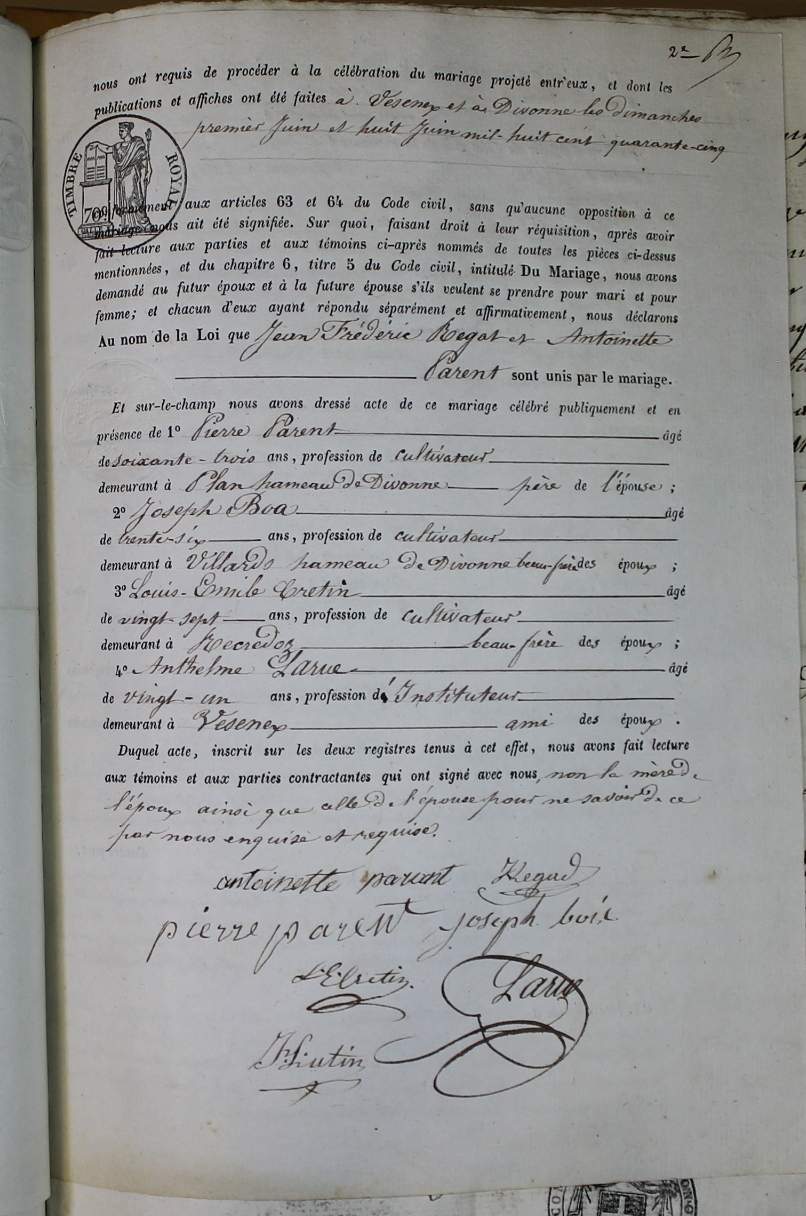 2e
nous ont requis de procéder à la célébration du mariage projeté entr'eux, et dont les
publications et affiches ont été faites à Vesenex et à Divonne les dimanches
premier Juin et huit Juin mil-huit cent quarante-cinq
TIMBRE ROYAL
70
conformément aux articles 63 et 64 du Code civil, sans qu'aucune opposition à ce
mariage nous ait été signifiée. Sur quoi, faisant droit à leur réquisition, après avoir
fait lecture aux parties et aux témoins ci-après nommés de toutes les pièces ci-dessus
mentionnées, et du chapitre 6, titre 5 du Code civil, intitulé Du Mariage, nous avons
demandé au futur époux et à la future épouse s'ils veulent se prendre pour mari et pour
femme; et chacun d'eux ayant répondu séparément et affirmativement, nous déclarons
Au nom de la Loi que Jean Frédéric Regat et Antoinette
Parent sont unis par le mariage.
Et sur-le-champ nous avons dressé acte de ce mariage célébré publiquement et en
présence de 1o Pierre Parent âgé
de soixante-trois ans, profession de cultivateur
demeurant à Plan hameau de Divonne père de l'épouse;
2o Joseph Boa âgé
de trente-six ans, profession de cultivateur
demeurant à Villards hameau de Divonne beau-frère des époux;
3o Louis-Emile Cretin âgé
de vingt-sept ans, profession de cultivateur
demeurant à beau-frère des époux;
4o Anthelme Larue âgé
de vingt-un ans, profession d'Instituteur
demeurant à Vesenex ami des époux.
Duquel acte, inscrit sur les deux registres tenus à cet effet, nous avons fait lecture
aux témoins et aux parties contractantes qui ont signé avec nous, non la mère de
l'époux ainsi que celle de l'épouse pour ne savoir de ce
par nous enquise et requise.
antoinette parant Regad
pierre parent joseph boix
L. E. Cretin. Larue